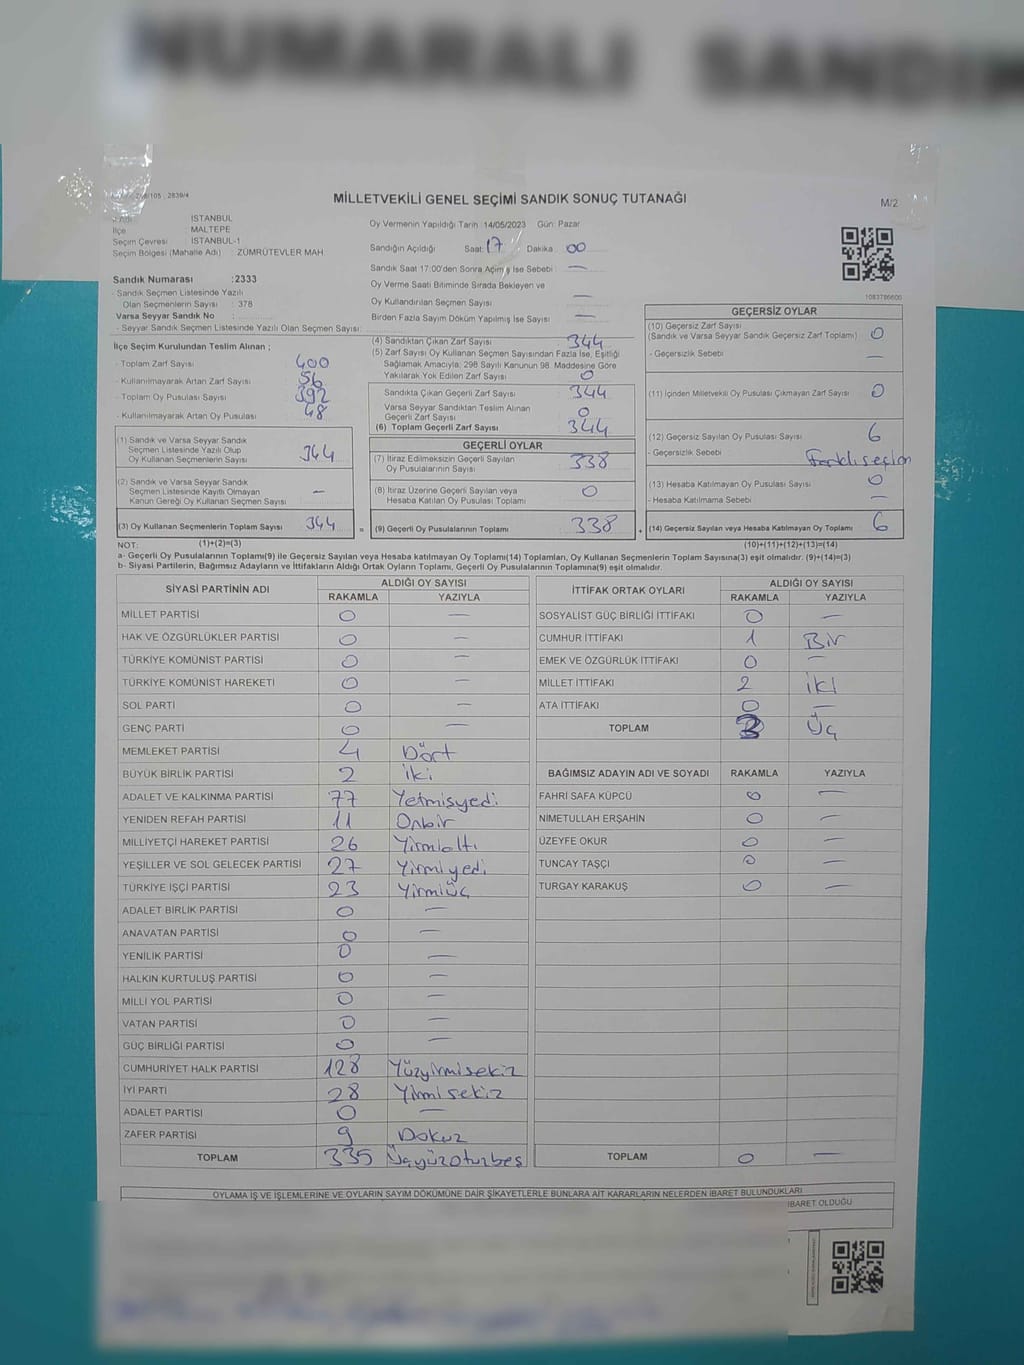 NUMARALI SANDIK
2839/4
MİLLETVEKİLİ GENEL SEÇİMİ SANDIK SONUÇ TUTANAĞI
M/2
İSTANBUL
İlçe MALTEPE
Seçim Çevresi : İSTANBUL-1
Seçim Bölgesi (Mahalle Adı) : ZÜMRÜTEVLER MAH
Sandık Numarası :2333
- Sandık Seçmen Listesinde Yazılı
Olan Seçmenlerin Sayısı : 378
Varsa Seyyar Sandık No
- Seyyar Sandık Seçmen Listesinde Yazılı Olan Seçmen Sayısı:
Oy Vermenin Yapıldığı Tarih : 14/05/2023 Gün: Pazar
Sandığın Açıldığı Saat: 17 Dakika : 00
Sandık Saat 17:00'den Sonra Açılmış İse Sebebi : —
Oy Verme Saati Bitiminde Sırada Bekleyen ve
Oy Kullandırılan Seçmen Sayısı : —
Birden Fazla Sayım Döküm Yapılmış İse Sayısı : —
1083786600
İlçe Seçim Kurulundan Teslim Alınan ;
- Toplam Zarf Sayısı : 400
- Kullanılmayarak Artan Zarf Sayısı : 56
- Toplam Oy Pusulası Sayısı : 392
- Kullanılmayarak Artan Oy Pusulası : 48
(1) Sandık ve Varsa Seyyar Sandık
Seçmen Listesinde Yazılı Olup
Oy Kullanan Seçmenlerin Sayısı : 344
(2) Sandık ve Varsa Seyyar Sandık
Seçmen Listesinde Kayıtlı Olmayan
Kanun Gereği Oy Kullanan Seçmen Sayısı : —
(3) Oy Kullanan Seçmenlerin Toplam Sayısı : 344 =
(4) Sandıktan Çıkan Zarf Sayısı : 344
(5) Zarf Sayısı Oy Kullanan Seçmen Sayısından Fazla İse, Eşitliği
Sağlamak Amacıyla; 298 Sayılı Kanunun 98. Maddesine Göre
Yakılarak Yok Edilen Zarf Sayısı : 0
Sandıkta Çıkan Geçerli Zarf Sayısı : 344
Varsa Seyyar Sandıktan Teslim Alınan
Geçerli Zarf Sayısı : 0
(6) Toplam Geçerli Zarf Sayısı : 344
GEÇERLİ OYLAR
(7) İtiraz Edilmeksizin Geçerli Sayılan
Oy Pusulalarının Sayısı : 338
(8) İtiraz Üzerine Geçerli Sayılan veya
Hesaba Katılan Oy Pusulası Toplamı : 0
(9) Geçerli Oy Pusulalarının Toplamı : 338 +
GEÇERSİZ OYLAR
(10) Geçersiz Zarf Sayısı
(Sandık ve Varsa Seyyar Sandık Geçersiz Zarf Toplamı) : 0
- Geçersizlik Sebebi : —
(11) İçinden Milletvekili Oy Pusulası Çıkmayan Zarf Sayısı : 0
(12) Geçersiz Sayılan Oy Pusulası Sayısı : 6
- Geçersizlik Sebebi : Farklı seçim
(13) Hesaba Katılmayan Oy Pusulası Sayısı : 0
- Hesaba Katılmama Sebebi : —
(14) Geçersiz Sayılan veya Hesaba Katılmayan Oy Toplamı : 6
NOT: (1)+(2)=(3) (10)+(11)+(12)+(13)=(14)
a- Geçerli Oy Pusulalarının Toplamı(9) ile Geçersiz Sayılan veya Hesaba katılmayan Oy Toplamı(14) Toplamları, Oy Kullanan Seçmenlerin Toplam Sayısına(3) eşit olmalıdır. (9)+(14)=(3)
b- Siyasi Partilerin, Bağımsız Adayların ve İttifakların Aldığı Ortak Oyların Toplamı, Geçerli Oy Pusulalarının Toplamına(9) eşit olmalıdır.
SİYASİ PARTİNİN ADI ALDIĞI OY SAYISI
RAKAMLA YAZIYLA
MİLLET PARTİSİ 0 —
HAK VE ÖZGÜRLÜKLER PARTİSİ 0 —
TÜRKİYE KOMÜNİST PARTİSİ 0 —
TÜRKİYE KOMÜNİST HAREKETİ 0 —
SOL PARTİ 0 —
GENÇ PARTİ 0 —
MEMLEKET PARTİSİ 4 Dört
BÜYÜK BİRLİK PARTİSİ 2 iki
ADALET VE KALKINMA PARTİSİ 77 Yetmişyedi
YENİDEN REFAH PARTİSİ 11 Onbir
MİLLİYETÇİ HAREKET PARTİSİ 26 Yirmialtı
YEŞİLLER VE SOL GELECEK PARTİSİ 27 Yirmiyedi
TÜRKİYE İŞÇİ PARTİSİ 23 Yirmiüç
ADALET BİRLİK PARTİSİ 0 —
ANAVATAN PARTİSİ 0 —
YENİLİK PARTİSİ 0 —
HALKIN KURTULUŞ PARTİSİ 0 —
MİLLİ YOL PARTİSİ 0 —
VATAN PARTİSİ 0 —
GÜÇ BİRLİĞİ PARTİSİ 0 —
CUMHURİYET HALK PARTİSİ 128 Yüzyirmisekiz
İYİ PARTİ 28 Yirmisekiz
ADALET PARTİSİ 0 —
ZAFER PARTİSİ 9 Dokuz
TOPLAM 335 Üçyüzotuzbeş
İTTİFAK ORTAK OYLARI ALDIĞI OY SAYISI
RAKAMLA YAZIYLA
SOSYALİST GÜÇ BİRLİĞİ İTTİFAKI 0 —
CUMHUR İTTİFAKI 1 Bir
EMEK VE ÖZGÜRLÜK İTTİFAKI 0 —
MİLLET İTTİFAKI 2 iki
ATA İTTİFAKI 0 —
TOPLAM 3 Üç
BAĞIMSIZ ADAYIN ADI VE SOYADI RAKAMLA YAZIYLA
FAHRİ SAFA KÜPCÜ 0 —
NİMETULLAH ERŞAHİN 0 —
ÜZEYFE OKUR 0 —
TUNCAY TAŞÇI 0 —
TURGAY KARAKUŞ 0 —
TOPLAM 0 —
OYLAMA İŞ VE İŞLEMLERİNE VE OYLARIN SAYIM DÖKÜMÜNE DAİR ŞİKAYETLERLE BUNLARA AİT KARARLARIN NELERDEN İBARET BULUNDUKLARI
İBARET OLDUĞU